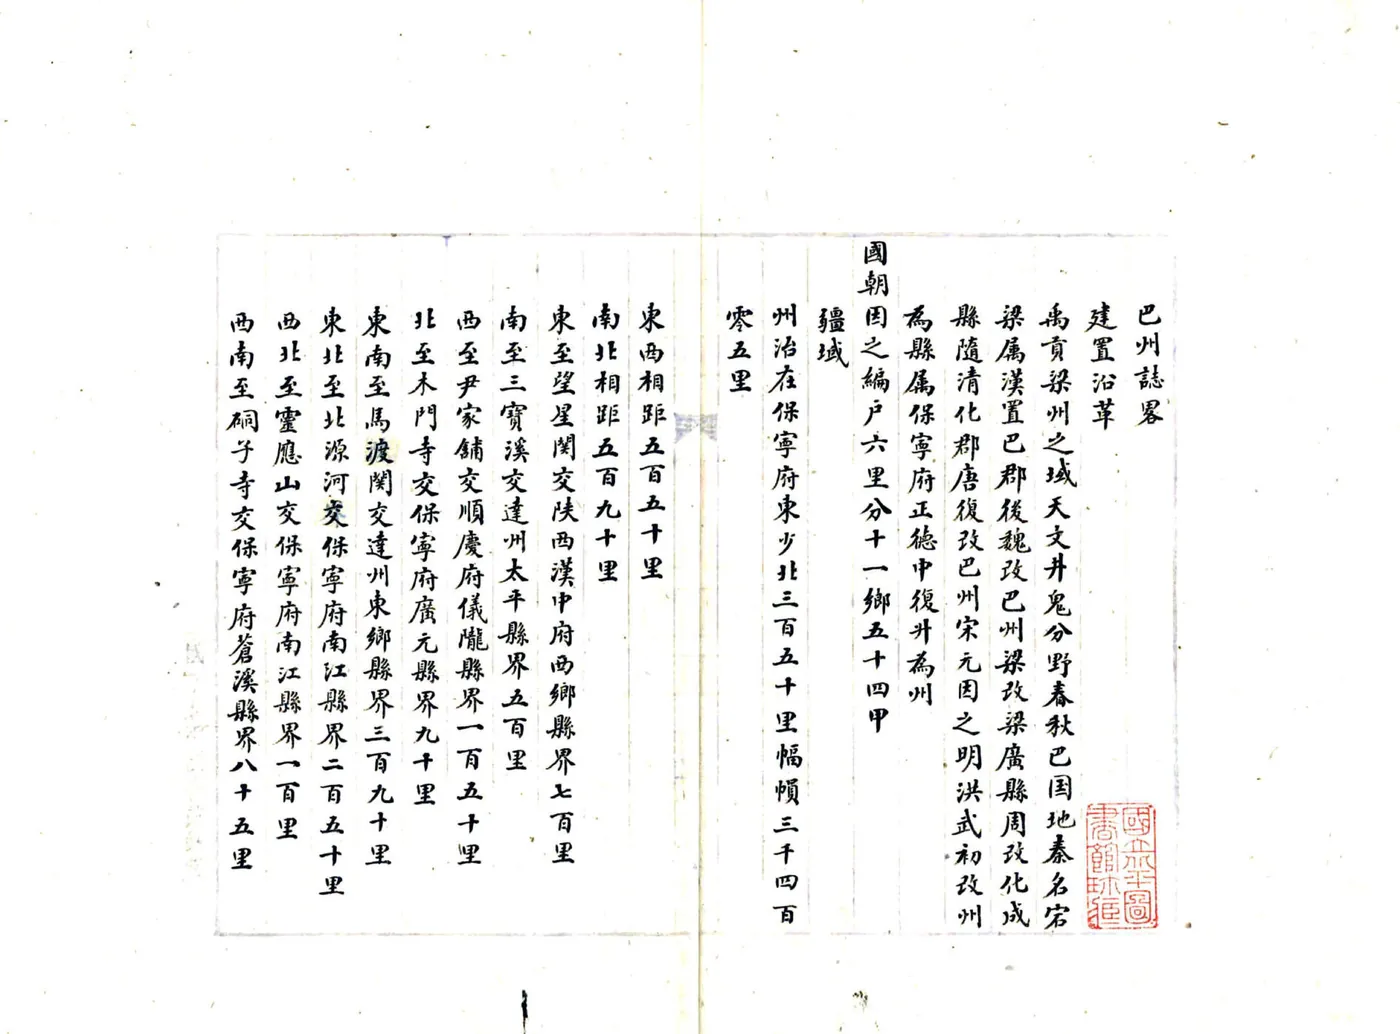 巴州誌畧
建置沿革
禹貢梁州之域天文井鬼分野春秋巴国地秦名宕
梁属漢置巴郡後魏改巴州梁改梁廣縣周改化成
縣隨清化郡唐復改巴州宋元因之明洪武初改州
為縣属保寧府正德中復升為州
國朝因之編户六里分十一鄉五十四甲
疆域
州治在保寧府東少北三百五十里幅幀三千四百
零五里
東西相距五百五十里
南北相距五百九十里
東至望星関交陕西漢中府西鄉縣界七百里
南至三寶溪交達州太平縣界五百里
西至尹家舖交順慶府儀隴縣界一百五十里
北至木門寺交保寧府廣元縣界九十里
東南至馬渡関交達州東鄉縣界三百九十里
東北至北源河交保寧府南江縣界二百五十里
西北至靈應山交保寧府南江縣界一百里
西南至硐子寺交保寧府蒼溪縣界八十五里
國立北平圖
書館珎藏